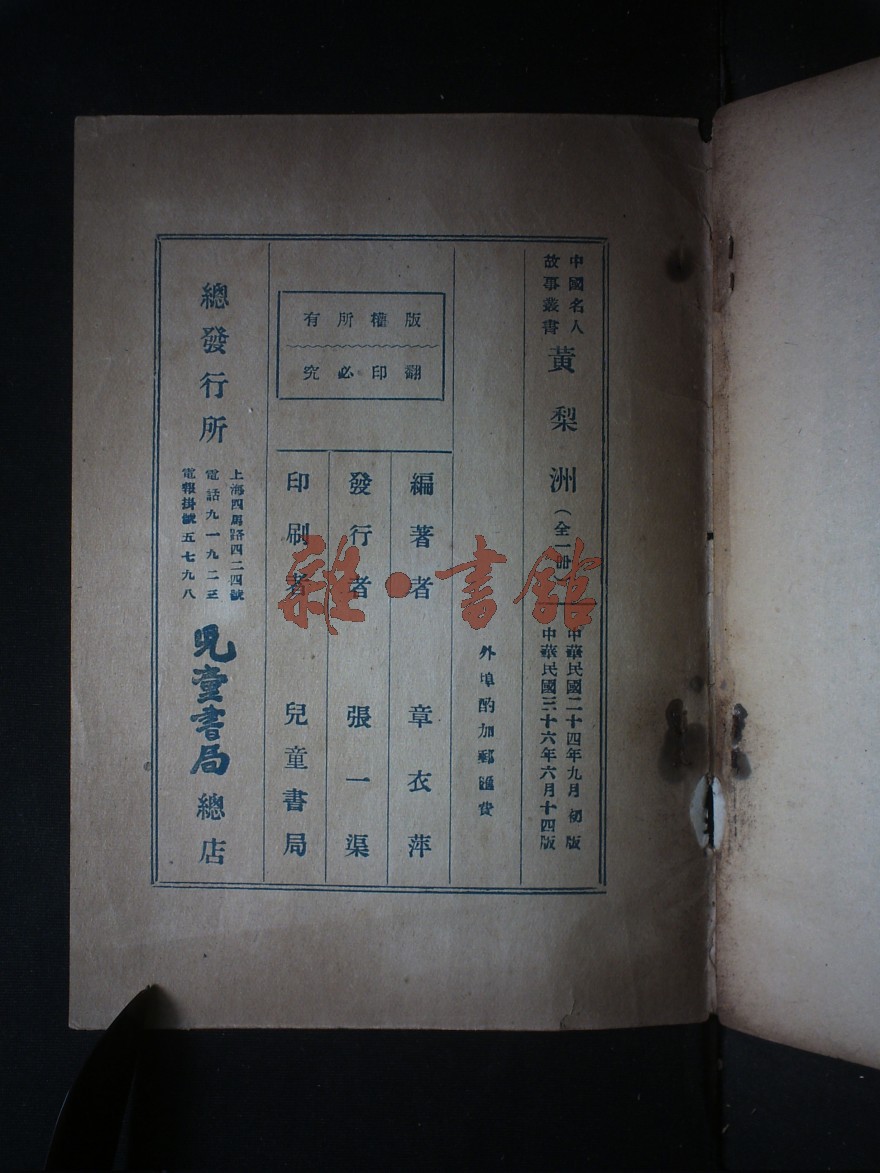 中國名人
故事叢書
黃梨洲（全一冊）
中華民國二十四年九月初版
中華民國三十六年六月十四版
外埠酌加郵匯費
版權所有
翻印必究
編著者 章衣萍
發行者 張一渠
印刷者 兒童書局
總發行所
上海四馬路四二四號
電話九一九二三
電報掛號五七九八
兒童書局總店
雜·書館